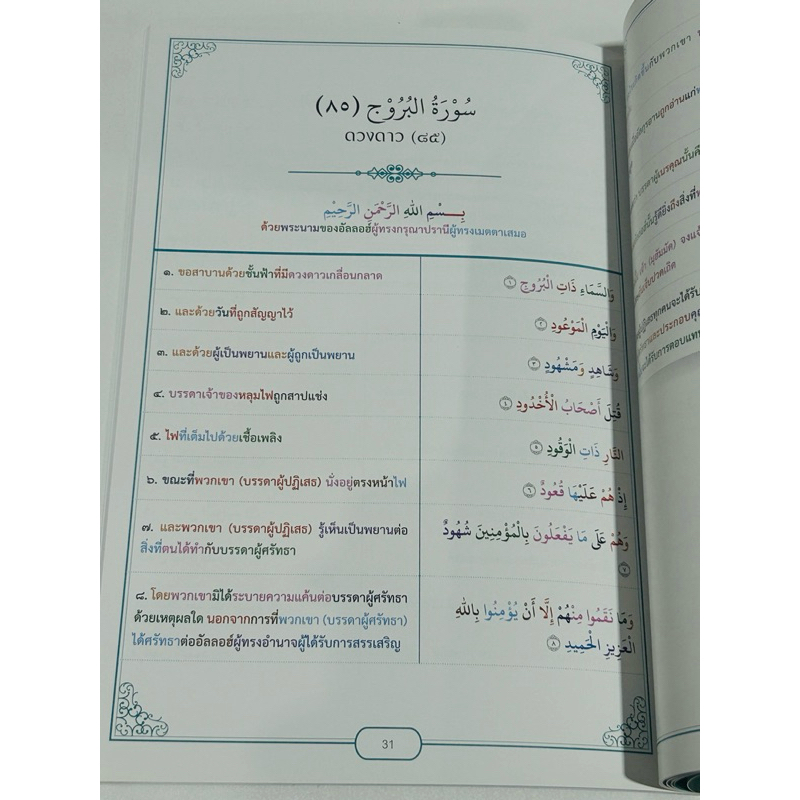 سُوْرَةُ البُرُوْجِ (٨٥)
ดวงดาว (๘๕)
بِـــسْمِ اللهِ الرَّحْمَنِ الرَّحِيْمِ
ด้วยพระนามของอัลลอฮ์ผู้ทรงกรุณาปรานีผู้ทรงเมตตาเสมอ
๑. ขอสาบานด้วยชั้นฟ้าที่มีดวงดาวเกลื่อนกลาด
وَالسَّمَاءِ ذَاتِ الْبُرُوجِ ١
๒. และด้วยวันที่ถูกสัญญาไว้
وَالْيَوْمِ الْمَوْعُودِ ٢
๓. และด้วยผู้เป็นพยานและผู้ถูกเป็นพยาน
وَشَاهِدٍ وَمَشْهُودٍ ٣
๔. บรรดาเจ้าของหลุมไฟถูกสาปแช่ง
قُتِلَ أَصْحَابُ الْأُخْدُودِ ٤
๕. ไฟที่เต็มไปด้วยเชื้อเพลิง
النَّارِ ذَاتِ الْوَقُودِ ٥
๖. ขณะที่พวกเขา (บรรดาผู้ปฏิเสธ) นั่งอยู่ตรงหน้าไฟ
إِذْ هُمْ عَلَيْهَا قُعُودٌ ٦
๗. และพวกเขา (บรรดาผู้ปฏิเสธ) รู้เห็นเป็นพยานต่อ
สิ่งที่ตนได้ทำกับบรรดาผู้ศรัทธา
وَهُمْ عَلَى مَا يَفْعَلُونَ بِالْمُؤْمِنِينَ شُهُودٌ
٧
๘. โดยพวกเขามิได้ระบายความแค้นต่อบรรดาผู้ศรัทธา
ด้วยเหตุผลใด นอกจากการที่พวกเขา (บรรดาผู้ศรัทธา)
ได้ศรัทธาต่ออัลลอฮ์ผู้ทรงอำนาจผู้ได้รับการสรรเสริญ
وَمَا نَقَمُوا مِنْهُمْ إِلَّا أَنْ يُؤْمِنُوا بِاللهِ
الْعَزِيزِ الْحَمِيدِ ٨
31